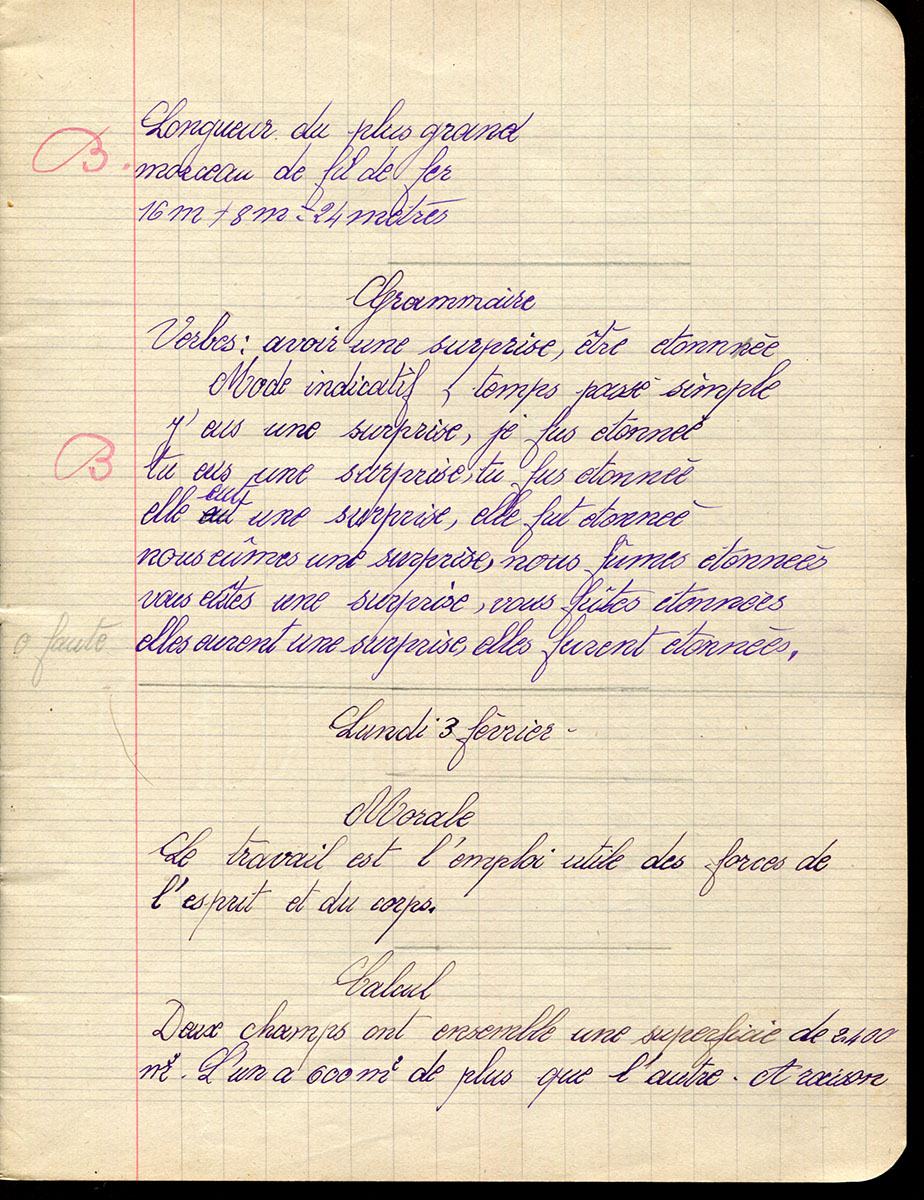 Longueur du plus grand
B. morceau de fil de fer
16 m + 8 m = 24 mètres
Grammaire
Verbes : avoir une surprise, être étonnée
Mode indicatif, temps passé simple
j'eus une surprise, je fus étonnée
B tu eus une surprise, tu fus étonnée
elle eut une surprise, elle fut étonnée
nous eûmes une surprise, nous fûmes étonnées
vous eûtes une surprise, vous fûtes étonnées
0 faute elles eurent une surprise, elles furent étonnées.
Lundi 3 février -
Morale
Le travail est l'emploi utile des forces de
l'esprit et du corps.
Calcul
Deux champs ont ensemble une superficie de 2.400
m². L'un a 600 m² de plus que l'autre. A raison